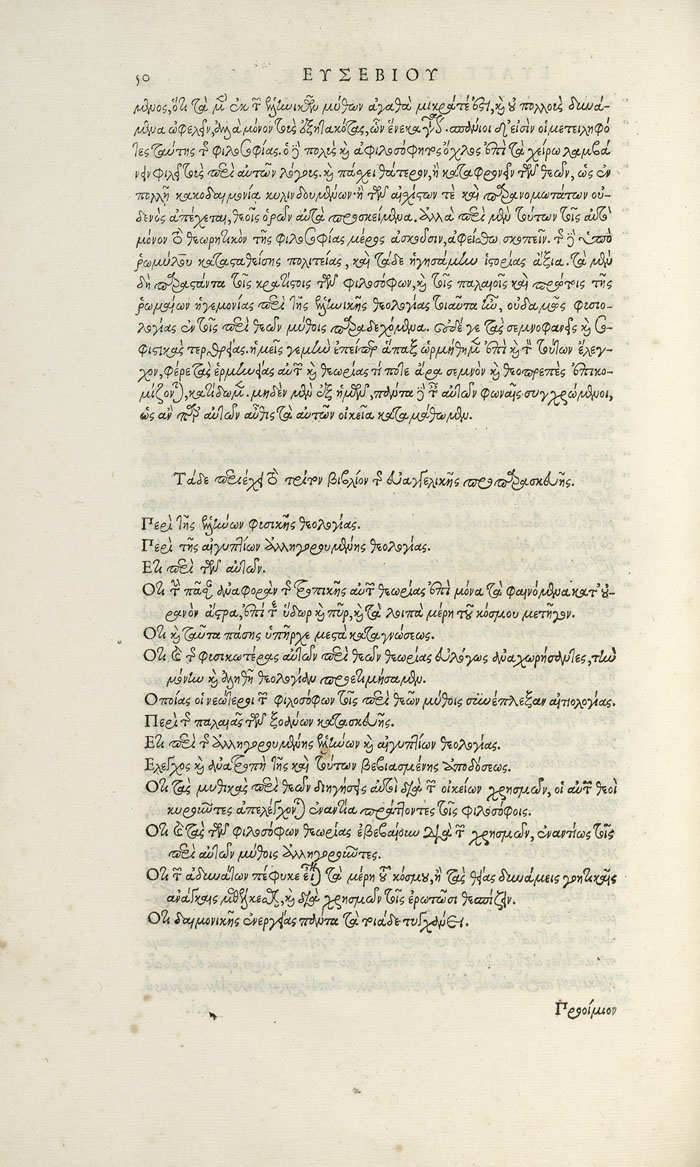 50 ΕΥΣΕΒΙΟΥ
μενος, ὅτι τὰ μὲν ἐκ τῶν ἑλληνικῶν μύθων ἀγαθὰ μικρά τέ ἐστι, καὶ οὐ πολλοὺς δυνά-
μενα ὠφελεῖν, ἀλλὰ μόνον τοὺς ἐξητακότας, ὧν ἕνεκα γίνεται. σπάνιοι δ' εἰσὶν οἱ μετειληφό
τες ταύτης τῆς φιλοσοφίας. ὁ δὲ πολὺς καὶ ἀφιλοσόφητος ὄχλος ἐπὶ τὰ χείρω λαμβά
νειν φιλεῖ τοὺς περὶ αὐτῶν λόγους. καὶ πάσχει θάτερον, ἢ καταφρονεῖν τῶν θεῶν, ὡς ἐν
πολλῇ κακοδαιμονίᾳ κυλινδουμένων· ἢ τῶν αἰσχίστων τὲ καὶ παρανομωτάτων οὐ-
δενὸς ἀπέχεται, θεοῖς ὁρῶν αὐτὰ προσκείμενα. ἀλλὰ περὶ μὲν τούτων τοῖς αὐτὸ
μόνον τὸ θεωρητικὸν τῆς φιλοσοφίας μέρος ἀσκοῦσιν, ἀφείσθω σκοπεῖν. τῆς δὲ ὑπὸ
ῥωμύλου κατασταθείσης πολιτείας, καὶ τάδε ἡγησάμην ἱστορίας ἄξια. τὰ μὲν
δὴ παραστάντα τοῖς κρατίστοις τῶν φιλοσόφων, καὶ τοῖς παλαιοῖς καὶ πρώτοις τῆς
ῥωμαίων ἡγεμονίας περὶ τῆς ἑλληνικῆς θεολογίας τοιαῦτα ἦν, οὐδαμῶς φυσιο-
λογίας ἐν τοῖς περὶ θεῶν μύθοις παραδεχόμενα. οὐδέ γε τὰς σεμνοφανεῖς καὶ σο-
φιστικὰς τερθρείας. ἡμεῖς γεμὴν ἐπείπερ ἅπαξ ὡρμήθημεν ἐπὶ καὶ τὸν τούτων ἔλεγ-
χον, φέρε τὰς ἑρμηνείας αὐτῶν καὶ θεωρίας τί ποτε ἄρα σεμνὸν καὶ θεοπρεπὲς ἐπικο-
μίζονται, κατίδωμεν. μηδὲν μὲν ἐξ ἡμῶν, πάντα δὲ ταῖς αὐτῶν φωναῖς συγχρώμενοι,
ὡς ἂν παρ' αὐτῶν αὖθις τὰ αὐτῶν οἰκεῖα καταμάθωμεν.
Τάδε περιέχει τὸ τρίτον βιβλίον τῆς εὐαγγελικῆς προπαρασκευῆς.
Περὶ τῆς ἑλλήνων φυσικῆς θεολογίας.
Περὶ τῆς αἰγυπτίων ἀλληγορουμένης θεολογίας.
Ἔτι περὶ τῶν αὐτῶν.
Ὅτι τῶν παρ' διαφορὰν τῆς τροπικῆς αὐτῶν θεωρίας ἐπὶ μόνα τὰ φαινόμενα κατ' οὐ-
ρανὸν ἄστρα, ἐπί τε ὕδωρ καὶ πῦρ, καὶ τὰ λοιπὰ μέρη τοῦ κόσμου μετῆγον.
Ὅτι καὶ ταῦτα πάσης ὑπῆρχε μεστὰ καταγνώσεως.
Ὅτι καὶ τῆς φυσικωτέρας αὐτῶν περὶ θεῶν θεωρίας εὐλόγως ἀναχωρήσαντες, τὴν
μόνην καὶ ἀληθῆ θεολογίαν προετιμήσαμεν.
Ὁποίας οἱ νεώτεροι τῶν φιλοσόφων τοῖς περὶ θεῶν μύθοις συνέπλεξαν αἰτιολογίας.
Περὶ τῆς παλαιᾶς τῶν ξοάνων κατασκευῆς.
Ἔτι περὶ τῆς ἀλληγορουμένης ἑλλήνων καὶ αἰγυπτίων θεολογίας.
Ἔλεγχος καὶ ἀνατροπὴ τῆς καὶ τούτων βεβιασμένης ἀποδόσεως.
Ὅτι τὰς μυθικὰς περὶ θεῶν διηγήσεις αὐτοὶ διὰ τῶν οἰκείων χρησμῶν, οἱ αὐτῶν θεοὶ
κυροῦντες ἀπελέγχονται ἐναντία πράττοντες τοῖς φιλοσόφοις.
Ὅτι καὶ τὰς τῶν φιλοσόφων θεωρίας ἐβεβαίουν διὰ τῶν χρησμῶν, ἐναντίως τοῖς
περὶ αὐτῶν μύθοις ἀλληγοροῦντες.
Ὅτι τῶν ἀδυνάτων πέφυκε εἶναι τὰ μέρη τοῦ κόσμου, ἢ τὰς θείας δυνάμεις γοητικαῖς
ἀνάγκαις καθέλκεσθαι, καὶ διὰ χρησμῶν τοῖς ἐρωτῶσι θεσπίζειν.
Ὅτι δαιμονικῆς ἐνεργείας πάντα τὰ τοιάδε τυγχάνει.
Προοίμιον